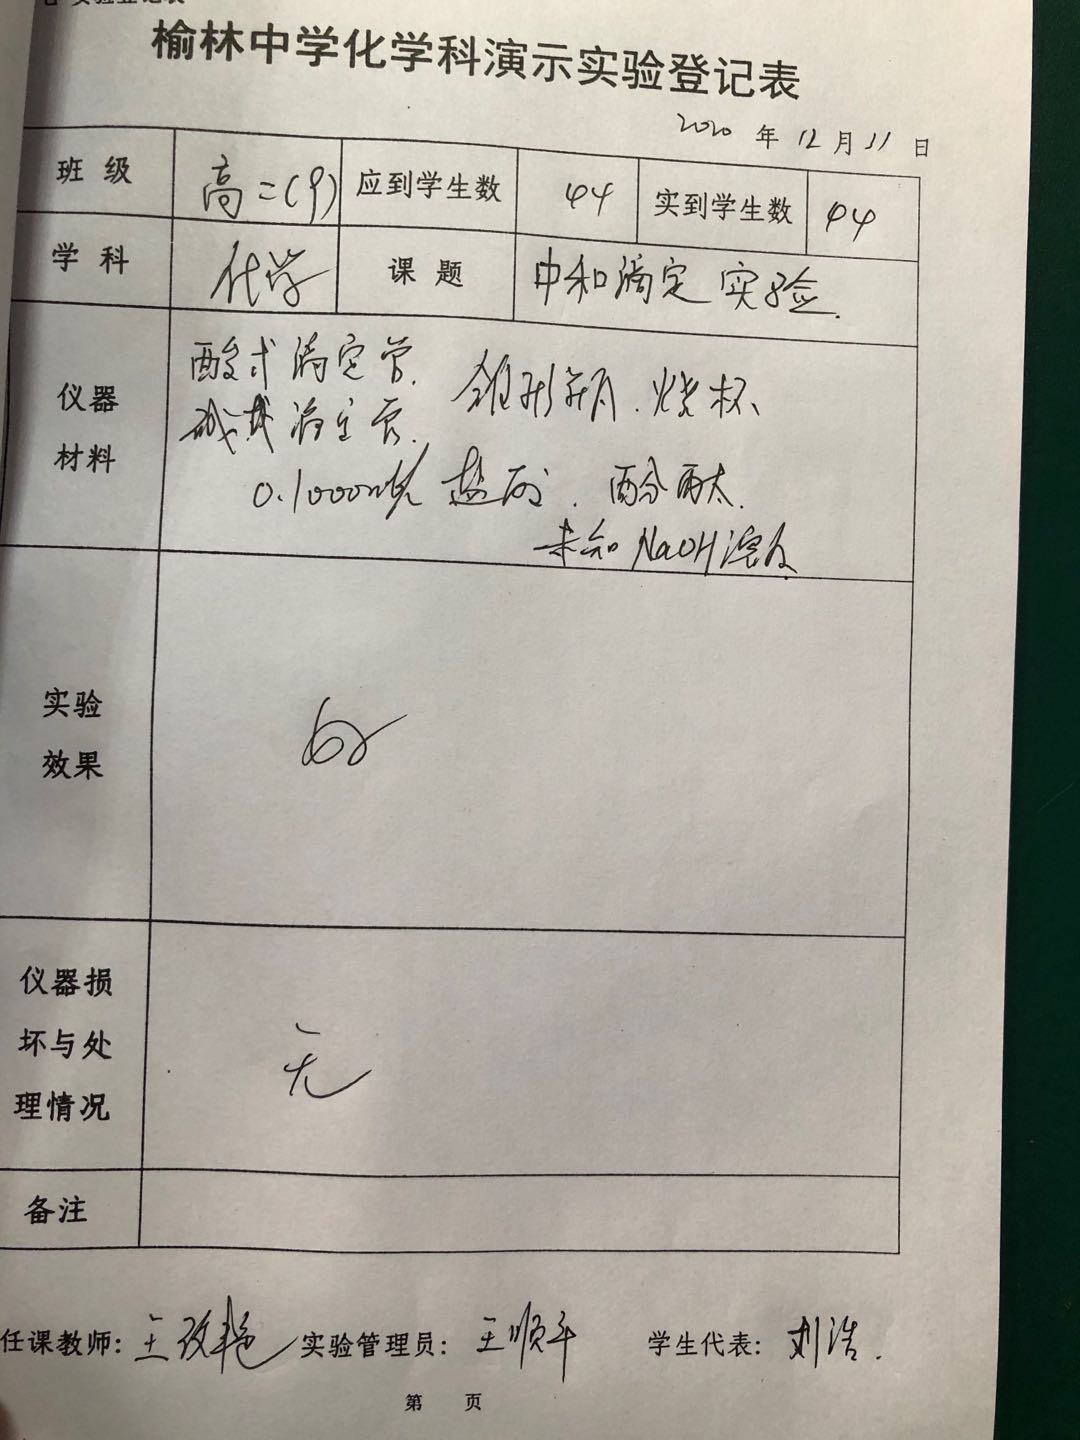 榆林中学化学科演示实验登记表
2020 年 12 月 11 日
班 级 高二(9) 应到学生数 44 实到学生数 44
学 科 化学 课 题 中和滴定实验.
仪器材料
酸式滴定管. 锥形瓶、烧杯、
碱式滴定管.
0.1000mol/L 盐酸. 酚酞.
未知NaOH溶液
实验效果 好
仪器损坏与处理情况 无
备注
任课教师: 王改艳 实验管理员: 王顺平 学生代表: 刘浩.
第 页